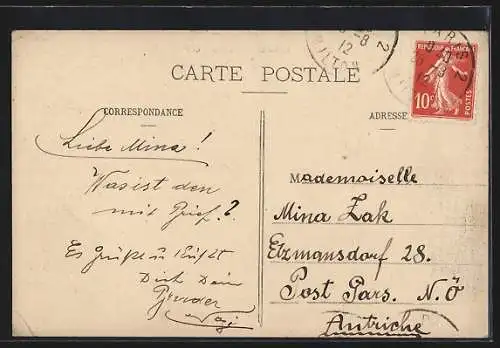 CARTE POSTALE
CORRESPONDANCE
ADRESSE
REPUBLIQUE FRANÇAISE
10c
POSTES
Liebe Mina!
Was ist den
mit Grief?
Es grüßt u küßt
Dich Dein
Bruder
Mademoiselle
Mina Zak
Etzmansdorf 28.
Post Gars. N.Ö
Autriche